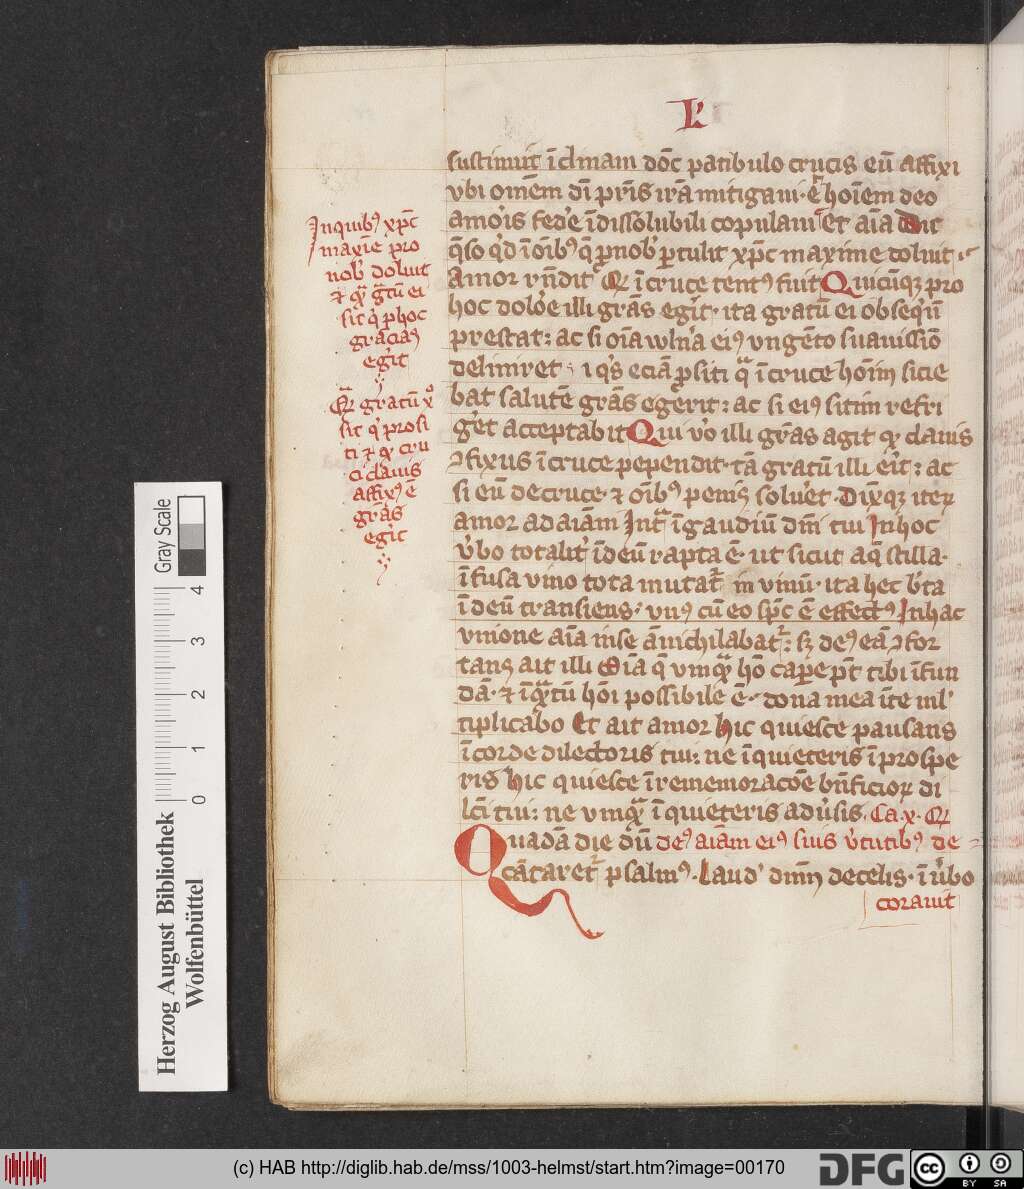 L'
sustinuit īclinam dōc patibulo crucis eū affixi
vbi om̄em dī pr̄is irā mitigaui · ē hoīem deo
amoris fede īdissolubili copulaui Et aīa dixit
q̄so qd īoībꝰ q̄ p nob' ptulit xp̄c maxime doluit
Amor rn̄dit Qr̄ ī cruce tentꝰ fuit Quicūqꝫ pro
hoc dolore illi grās egit · ita gratū ei obsequiū
prestat : ac si oīa wln̄a eiꝰ vngēto suauissīo
deliniret i qs eciā p siti qͣ ī cruce hōim sicie
bat salutē grās egerit : ac si eiꝰ sitim refri
geret acceptabit Qui vo illi grās agit qꝛ clauis
ↄfixus ī cruce pependit · tā gratū illi erit : ac
si eū de cruce · ⁊ oībꝰ penis solueret · Dixqꝫ iterꝝ
amor ad aiām Int̄ ī gaudiū dn̄i tui In hoc
vbo totalit' ī deū rapta ē · ut sicut aq̄ stilla ·
īfusa vino tota mutat̄ in vinū · ita hec b̄ta
ī deū transiens · vnꝰ cū eo sp̄c ē effectꝰ In hac
vnione aīa in se ānichilabat̄ : sꝫ deꝰ eā ↄfor
tans ait illi Oīa q̄ vmqͣ hō capere pt̄ tibi īfun
dā · ⁊ īqͣtū hōi possibile ē · dona mea īte ml'
tiplicabo Et ait amor hic quiesce pausans
ī corde dilectoris tui : ne īquieteris ī prospe
ris hic quiesce ī rememoracōe bn̄ficioꝝ di
lc̄i tui : ne vmqͣ īquieteris aduersis · Ca · x · Qr̄
Quadā die dū deꝰ aiām eiꝰ suis vtutibꝰ de
cātaret̄ psalmꝰ · Laud' dn̄m de celis · ī vbo
corauit
In quibꝰ xp̄c
maxīe pro
nob' doluit
⁊ qͣ grtū ei
sit qͥ p hoc
gracias
egit
Qͣ gratū xº
sit qͥ pro si
ti ⁊ qꝛ cru
ci clauis
affixꝰ ē
grās
egit
Gray Scale
4
3
2
1
0
Herzog August Bibliothek
Wolfenbüttel
(c) HAB http://diglib.hab.de/mss/1003-helmst/start.htm?image=00170
DFG
cc BY SA